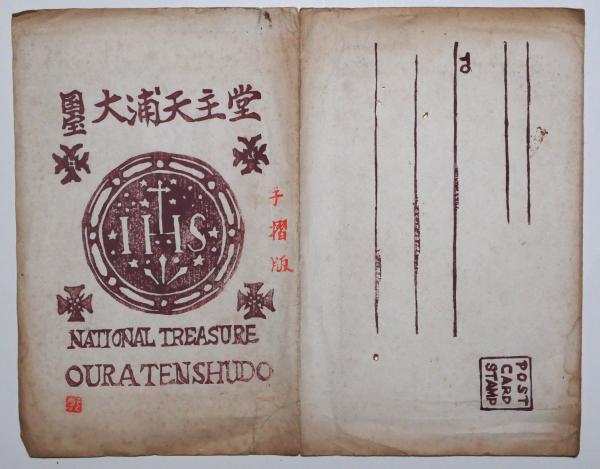 国宝
大浦天主堂
IHS
手摺版
NATIONAL TREASURE
OURATENSHUDO
TO
POST
CARD
STAMP